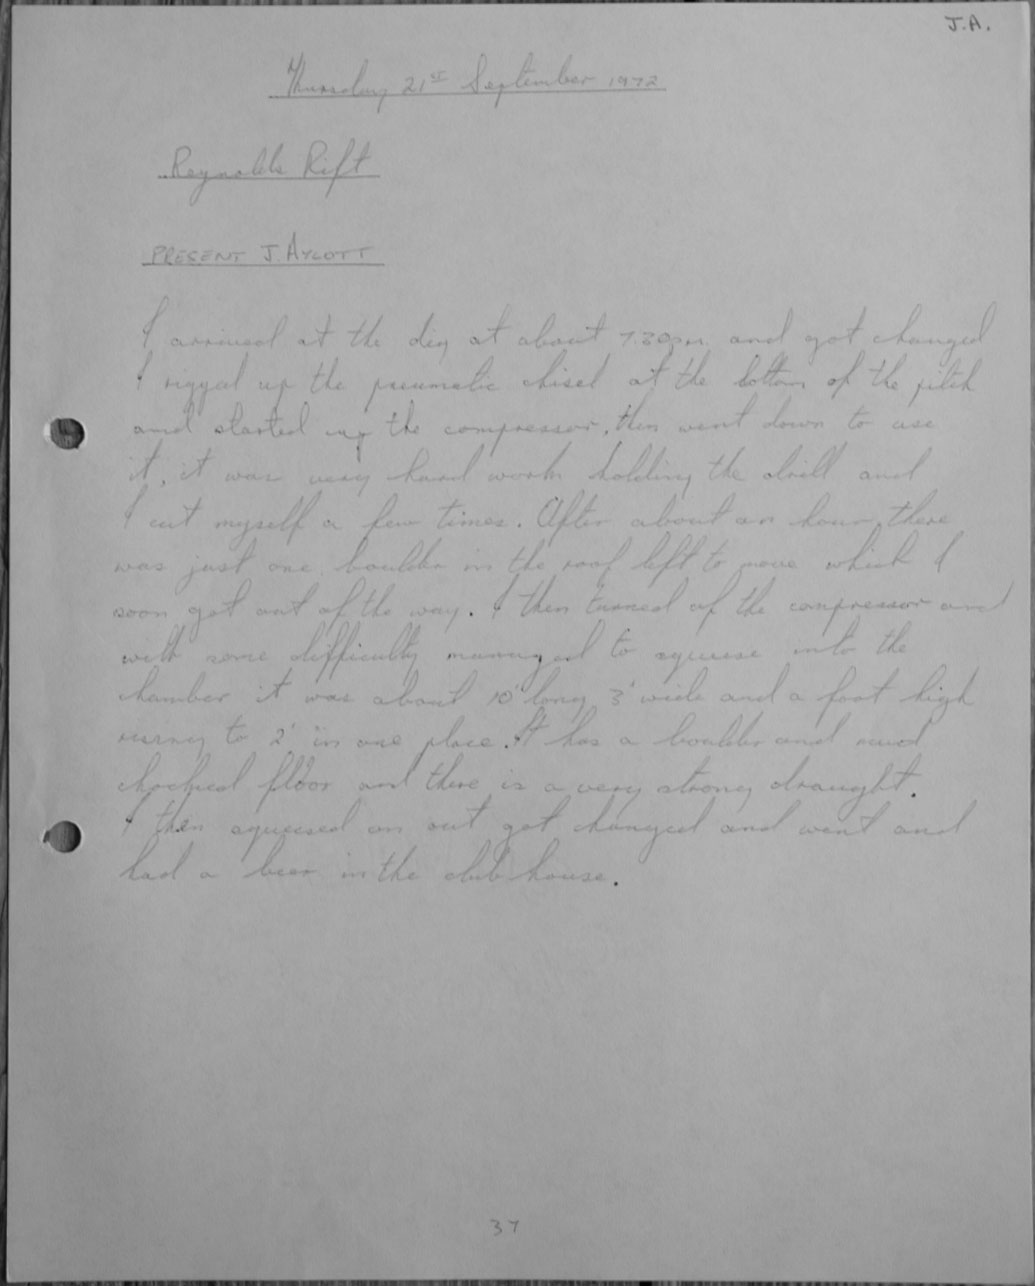 J.A.
Thursday 21st September 1972
Reynolds Rift
PRESENT J. AYLOTT
I arrived at the dig at about 7.30pm. and got changed
I rigged up the pneumatic chisel at the bottom of the pitch
and started up the compressor, then went down to use
it, it was very hard work holding the drill and
I cut myself a few times. After about an hour, there
was just one boulder in the roof left to move which I
soon got out of the way. I then turned of the compressor and
with some difficulty managed to squeese into the
chamber it was about 10' long 3' wide and a foot high
rising to 2' in one place. It has a boulder and mud
chocked floor and there is a very strong draught.
I then squeesed on out got changed and went and
had a beer in the club house.
37